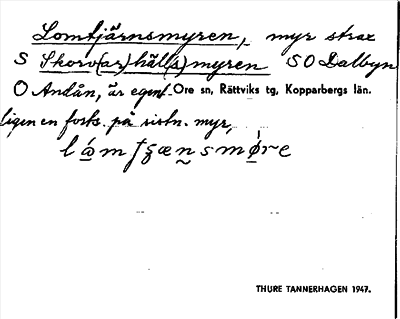 Lomtjärnsmyren, myr strax
S Skorv(ar)håll(s)myren SO Dalbyn
O Andån, är egent- Ore sn, Rättviks tg, Kopparbergs län.
ligen en forts. på sistn. myr,
THURE TANNERHAGEN 1947.